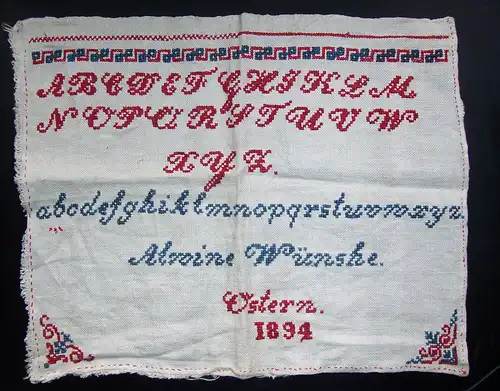 ABCDEFGHIKLM
NOPQRSTUVW
XYZ.
abcdefghiklmnopqrstuvwxyz.
Alwine Wünshe.
Ostern.
1894